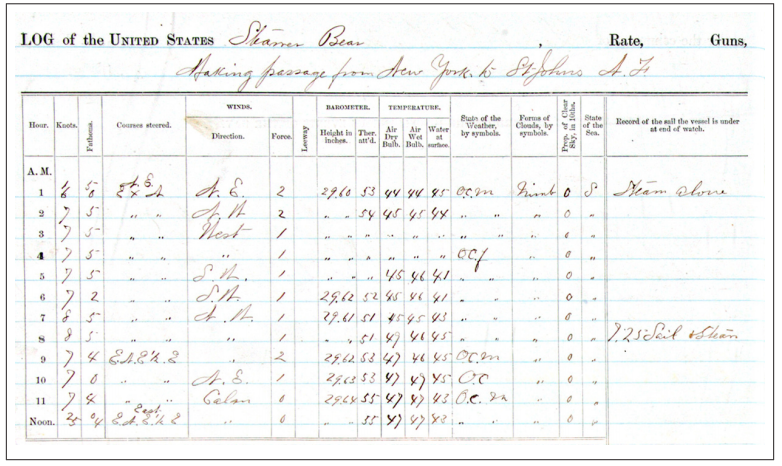 LOG of the UNITED STATES Steamer Bear , Rate, Guns,
Making passage from New York to St Johns N. F
Hour. Knots. Fathoms. Courses steered. WINDS. Direction. Force. Leeway BAROMETER. Height in inches. Ther. att'd. TEMPERATURE. Air Dry Bulb. Air Wet Bulb. Water at surface. State of the Weather, by symbols. Forms of Clouds, by symbols. Prop. of Clear Sky, in 10ths. State of the Sea. Record of the sail the vessel is under at end of watch.
A. M.
1 6 5 0 N.E. E x N N. E. 2 29.60 53 44 44 45 o.c.m Nimb 0 S Steam alone
2 7 5 " " N. W 2 " " 54 45 45 44 " " " 0 "
3 7 5 " " West 1 " " " " " " " " " 0 "
4 7 5 " " " 1 " " " " " " o.c.f " 0 "
5 7 5 " " S. W. 1 " " " 45 46 41 " " " 0 "
6 7 2 " " S. W 1 29.62 52 45 46 41 " " " 0 "
7 8 5 " " N. W. 1 29.61 51 45 45 43 " " " 0 "
8 8 5 " " " 1 " " 51 47 46 45 " " " 0 " 7.25 Sail & Steam
9 7 4 E.N.E.½ E " 2 29.62 53 47 46 45 o.c.m " 0 "
10 7 0 " " N. E. 1 29.63 53 47 47 45 O.C " 0 "
11 7 4 " " Calm 0 29.64 55 47 47 43 O.c.m " 0 "
Noon. 0/4 East E.N.E.½ E " 0 " " 55 47 47 43 " " " 0 "